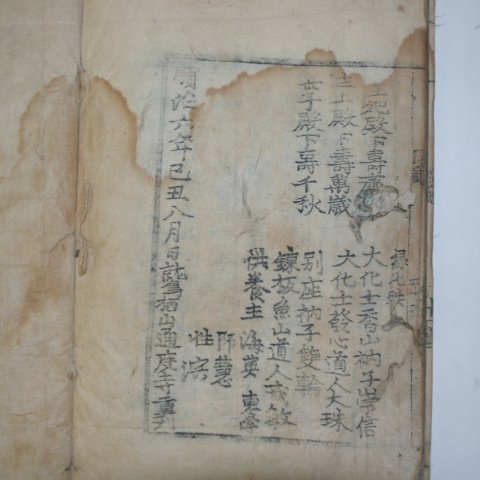 王妃殿下壽齊
主上殿下壽萬歲
世子殿下壽千秋
緣化秩
大化士香山衲子崇信
大化士發心道人大珠
別座衲子雙輪
鍊板魚山道人戒敏
供養主 海英
師慧
性淙
順治六年己丑八月日鷲栖山通度寺重刊